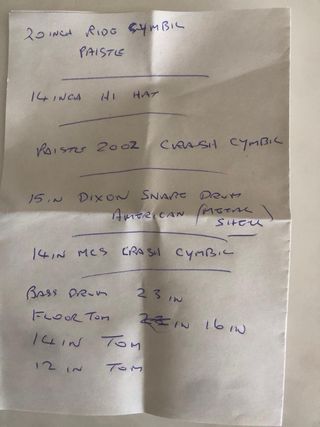 20 INCH RIDE CYMBIL
PAISTE
14 INCH HI HAT
PAISTE 2002 CRASH CYMBIL
15 IN DIXON SNARE DRUM
AMERICAN (METAL
SHELL)
14 IN MCS CRASH CYMBIL
BASS DRUM 23 IN
FLOOR TOM IN 16 IN
14 IN TOM
12 IN TOM